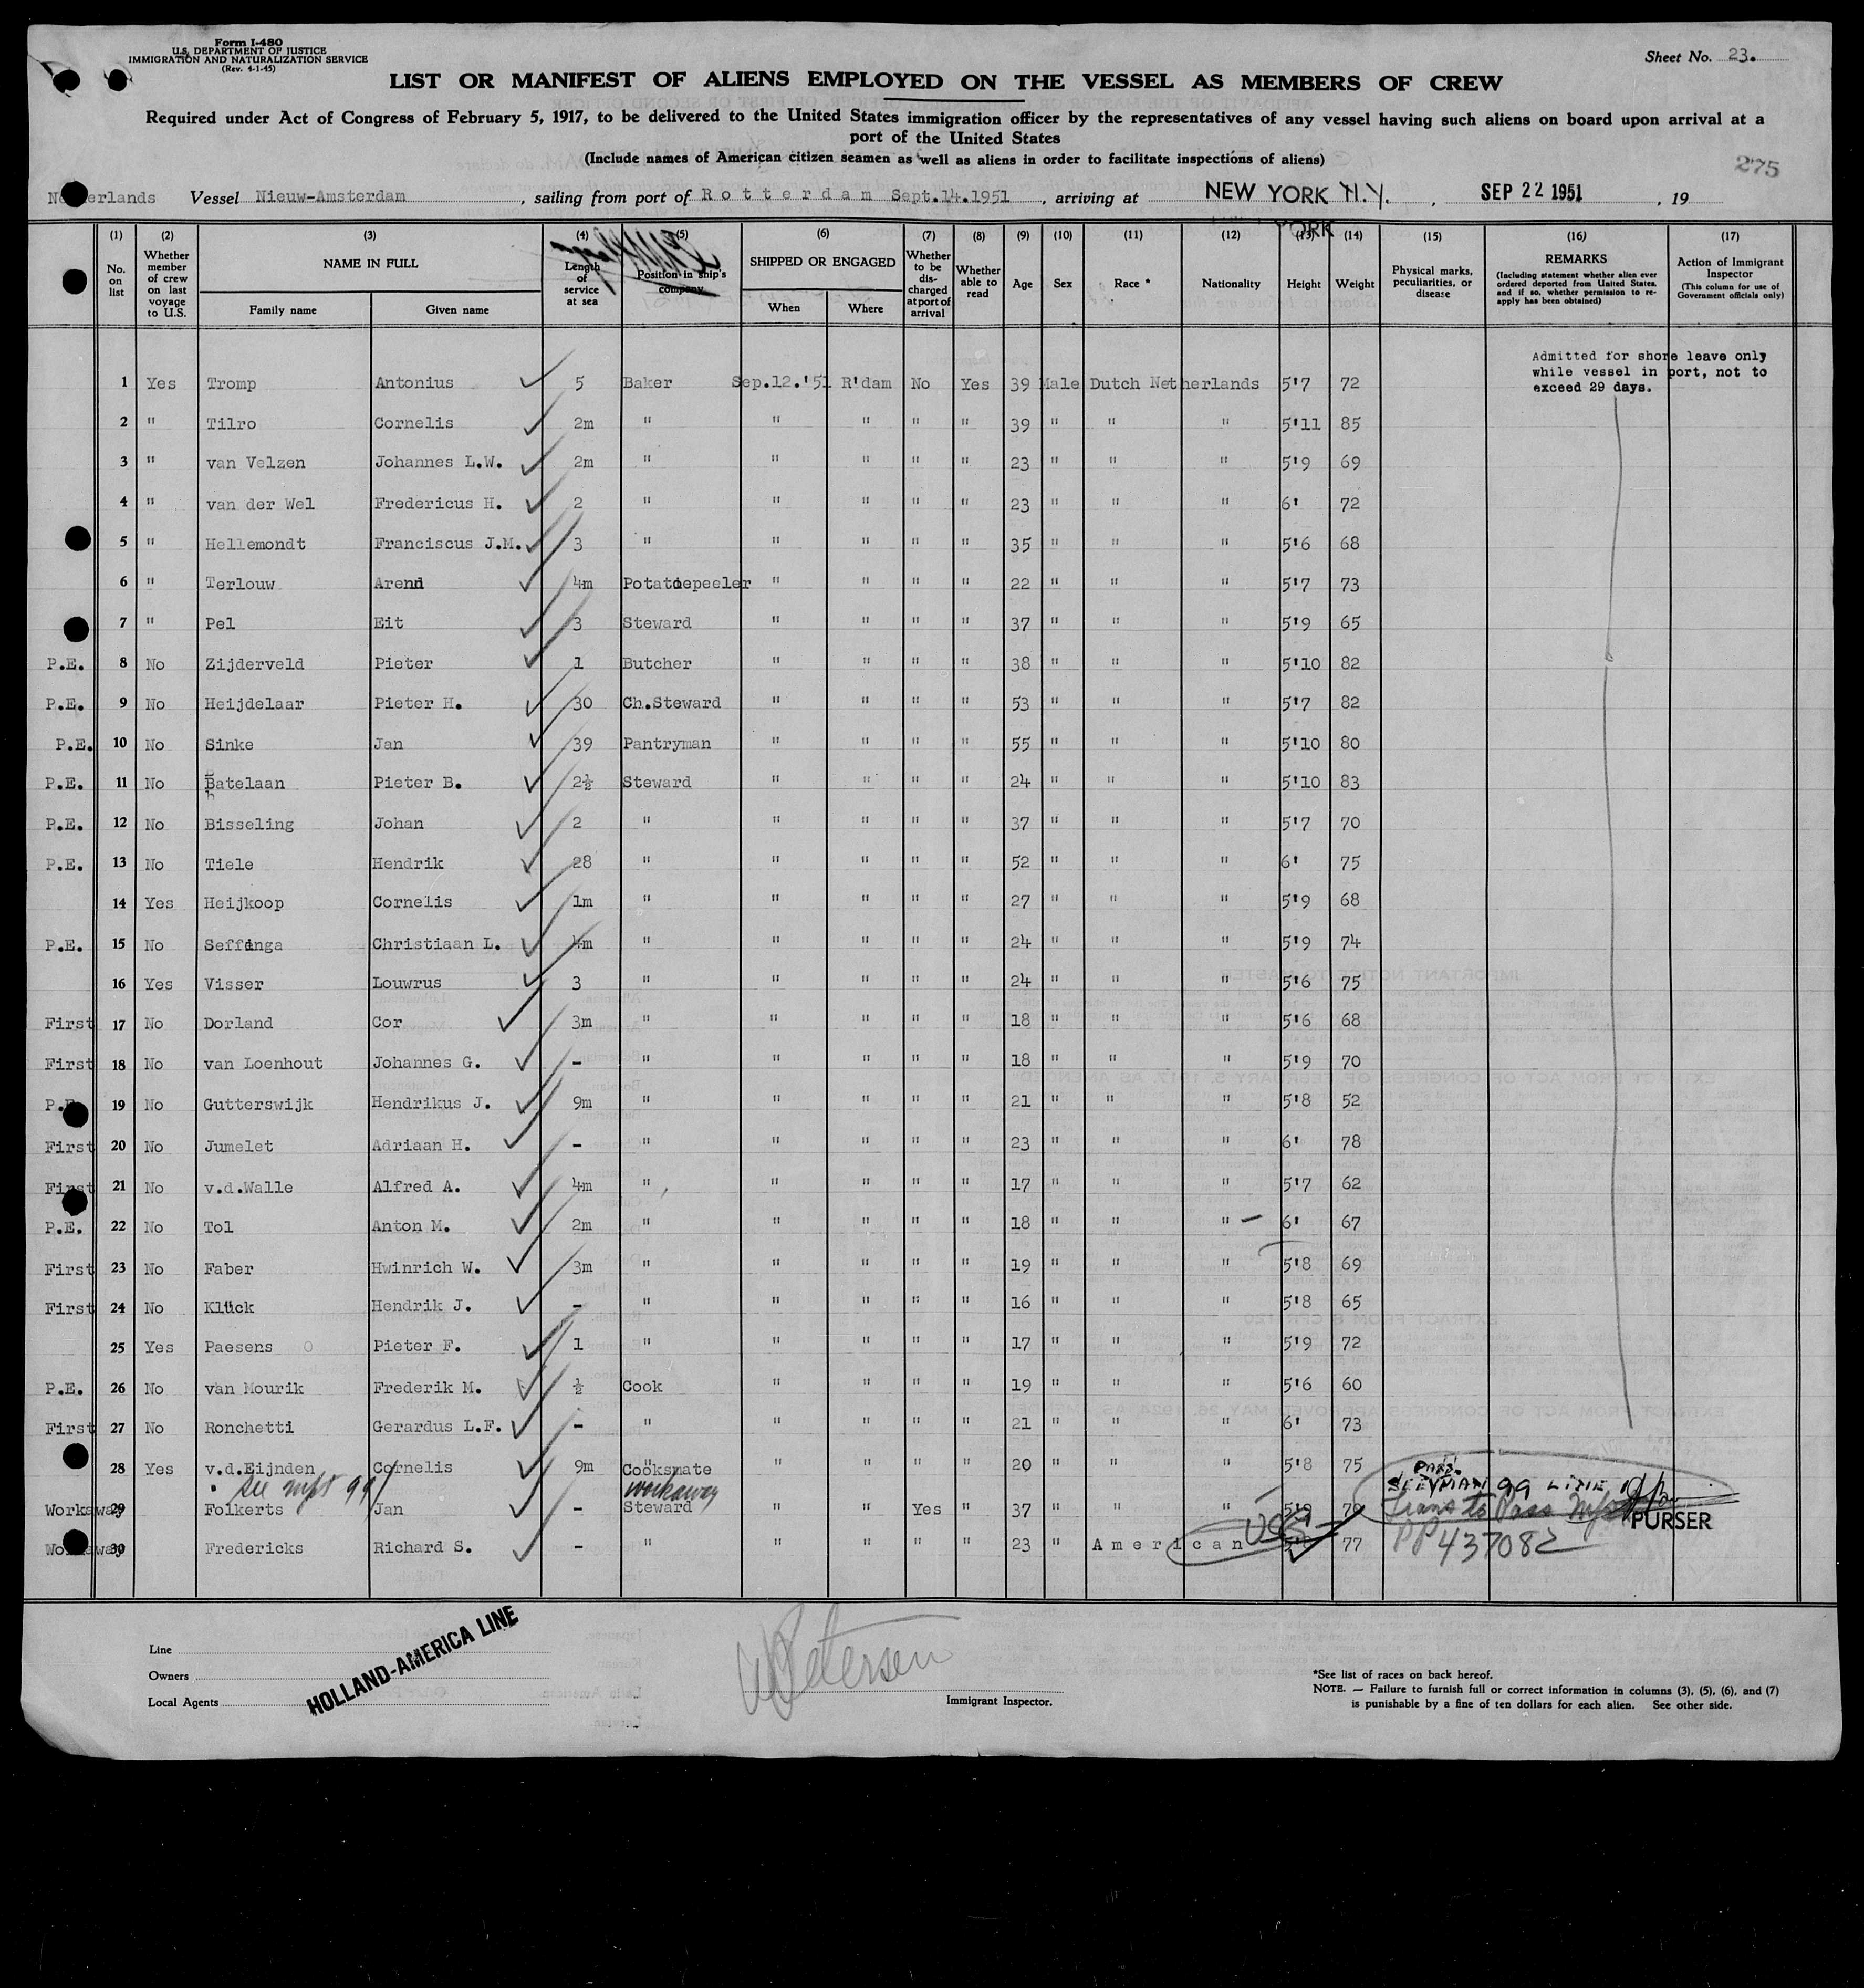 Form I-480
U.S. DEPARTMENT OF JUSTICE
IMMIGRATION AND NATURALIZATION SERVICE
(Rev. 4-1-45)
Sheet No. 23.
LIST OR MANIFEST OF ALIENS EMPLOYED ON THE VESSEL AS MEMBERS OF CREW
Required under Act of Congress of February 5, 1917, to be delivered to the United States immigration officer by the representatives of any vessel having such aliens on board upon arrival at a
port of the United States
(Include names of American citizen seamen as well as aliens in order to facilitate inspections of aliens)
275
Netherlands Vessel Nieuw-Amsterdam, sailing from port of Rotterdam Sept.14.1951, arriving at NEW YORK N.Y., SEP 22 1951, 19
YORK
(1) (2) (3) (4) (5) (6) (7) (8) (9) (10) (11) (12) (13) (14) (15) (16) (17)
No. on list
Whether member of crew on last voyage to U.S.
NAME IN FULL
Family name Given name
Length of service at sea
Position in ship's company
SHIPPED OR ENGAGED
When Where
Whether to be discharged at port of arrival
Whether able to read
Age Sex Race * Nationality Height Weight
Physical marks, peculiarities, or disease
REMARKS
(Including statement whether alien ever ordered deported from United States, and if so, whether permission to re-apply has been obtained)
Action of Immigrant Inspector
(This column for use of Government officials only)
Admitted for shore leave only
while vessel in port, not to
exceed 29 days.
1 Yes Tromp Antonius 5 Baker Sep.12.'51 R'dam No Yes 39 Male Dutch Netherlands 5'7 72
2 " Tilro Cornelis 2m " " " " " 39 " " " 5'11 85
3 " van Velzen Johannes L.W. 2m " " " " " 23 " " " 5'9 69
4 " van der Wel Fredericus H. 2 " " " " " 23 " " " 6' 72
5 " Hellemondt Franciscus J.M. 3 " " " " " 35 " " " 5'6 68
6 " Terlouw Arend 4m Potatoepeeler " " " " 22 " " " 5'7 73
7 " Pel Eit 3 Steward " " " " 37 " " " 5'9 65
P.E. 8 No Zijderveld Pieter 1 Butcher " " " " 38 " " " 5'10 82
P.E. 9 No Heijdelaar Pieter H. 30 Ch.Steward " " " " 53 " " " 5'7 82
P.E. 10 No Sinke Jan 39 Pantryman " " " " 55 " " " 5'10 80
P.E. 11 No Batelaan Pieter B. 2½ Steward " " " " 24 " " " 5'10 83
P.E. 12 No Bisseling Johan 2 " " " " " 37 " " " 5'7 70
P.E. 13 No Tiele Hendrik 28 " " " " " 52 " " " 6' 75
14 Yes Heijkoop Cornelis 1m " " " " " 27 " " " 5'9 68
P.E. 15 No Seffinga Christiaan L. 4m " " " " " 24 " " " 5'9 74
16 Yes Visser Louwrus 3 " " " " " 24 " " " 5'6 75
First 17 No Dorland Cor 3m " " " " " 18 " " " 5'6 68
First 18 No van Loenhout Johannes G. - " " " " " 18 " " " 5'9 70
P.E. 19 No Gutterswijk Hendrikus J. 9m " " " " " 21 " " " 5'8 52
First 20 No Jumelet Adriaan H. - " " " " " 23 " " " 6' 78
First 21 No v.d.Walle Alfred A. 4m " " " " " 17 " " " 5'7 62
P.E. 22 No Tol Anton M. 2m " " " " " 18 " " " 6' 67
First 23 No Faber Hwinrich W. 3m " " " " " 19 " " " 5'8 69
First 24 No Klück Hendrik J. - " " " " " 16 " " " 5'8 65
25 Yes Paesens Pieter F. 1 " " " " " 17 " " " 5'9 72
P.E. 26 No van Mourik Frederik M. ½ Cook " " " " 19 " " " 5'6 60
First 27 No Ronchetti Gerardus L.F. - " " " " " 21 " " " 6' 73
28 Yes v.d.Eijnden Cornelis 9m Cooksmate " " " " 20 " " " 5'8 75
see mft 99/ workaway
Workaway 29 Folkerts Jan - Steward " " Yes " 37 " " " 5'9 70 Trans to Pass
PURSER
Workaway 30 Fredericks Richard S. - " " " " " 23 " American 77 PP 437082
Line
Owners
Local Agents
HOLLAND-AMERICA LINE
Petersen
Immigrant Inspector.
*See list of races on back hereof.
NOTE. — Failure to furnish full or correct information in columns (3), (5), (6), and (7)
is punishable by a fine of ten dollars for each alien. See other side.